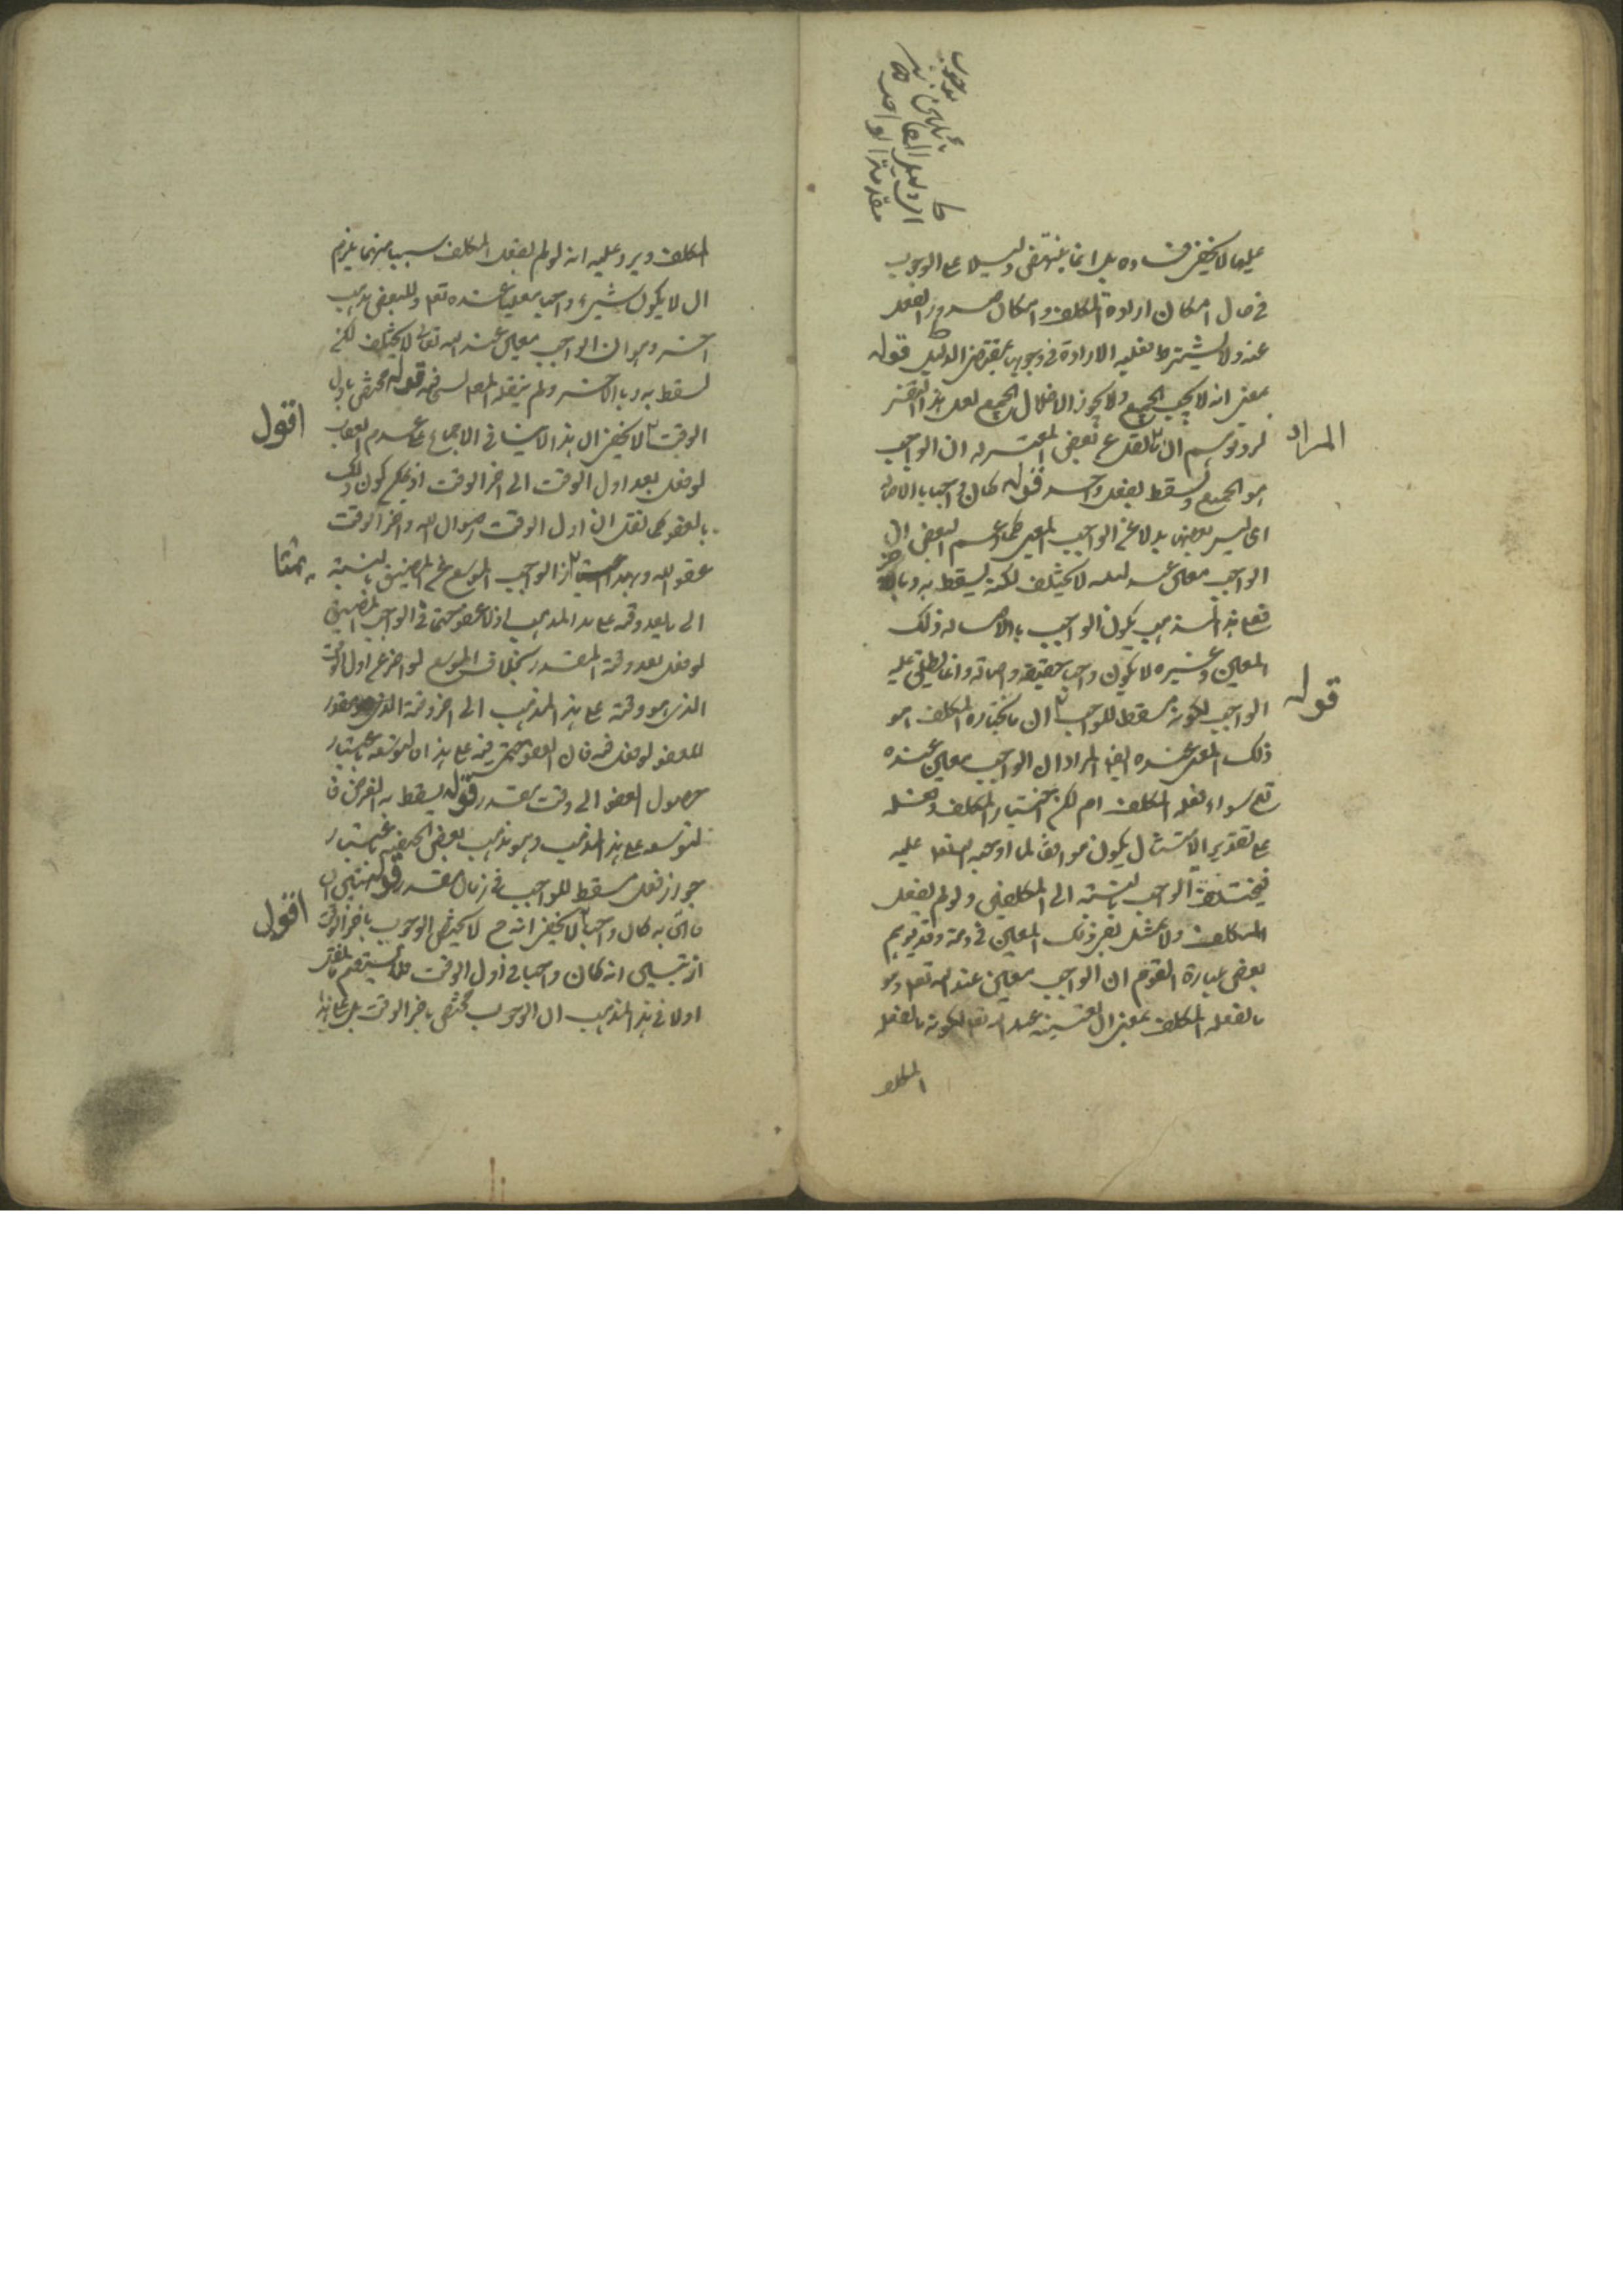 عليها لا يخفى فساده بل انما ينتهض دليلا على الوجوب
في حال امكان ارادة المكلف وامكان صدور الفعل
عنه ولا يشترط فعلية الارادة في وجوبها بمقتضى الدليل قوله
بمعنى انه لا يجب الجميع ولا يجوز الاخلال بالجميع لعل هذا التفسير
المراد
لرد توهم ان نقل عن بعض المعتزلة ان الواجب
هو الجميع ويسقط بفعل واحد قوله كان واجبا بالاصالة
اى ليس بعضها بدلا عن الواجب المعين كما زعم البعض ان
الواجب معين عند الله لا يختلف لكنه يسقط به وبالاخر
فعلى هذا المذهب يكون الواجب بالاصالة ذلك
المعين وغيره لا يكون واجبا حقيقة واصالة وانما يطلق عليه
قوله
الواجب لكونه مسقطا للواجب ان ما يختاره المكلف هو
ذلك المعين عنده ايضا المراد ان الواجب معين عنده
تعالى سواء فعله المكلف ام لا لكن اختيار المكلف وفعله
على تقدير الامتثال يكون موافقا لما اوجبه الله تعالى عليه
فيختلف الواجب بالنسبة الى المكلفين ولو لم يفعل
المكلف ولا يمتثل بقى ذلك المعين في ذمته وقد يوهم
بعض عبارة القوم ان الواجب معين عند الله تعالى وهو
ما يفعله المكلف بمعنى ان تعيينه عند الله تعالى لكونه ما يفعله
المكلف
المكلف ويرد عليه انه لو لم يفعل المكلف سببا منهما يلزم
ان لا يكون شيء واجبا معينا عنده تعالى وللبعض مذهب
اخر وهو ان الواجب معين عند الله تعالى لا يختلف لكنه
يسقط به وبالاخر ولم ينقله المصنف قوله مختص باول
اقول
الوقت لا يخفى ان هذا لا ينافي الاجماع على عدم العقاب
لو فعل بعد اول الوقت الى اخر الوقت اذ يمكن كون ذلك
بالعفو كما نقل ان اول الوقت رضوان الله واخر الوقت
عفو الله وبهذا يمتاز الواجب الموسع عن المضيق بالنسبة
الى ما بعد وقته على هذا المذهب اذ لا عفو حتما في الواجب المضيق
لو فعل بعد وقته المقدر بخلاف الموسع لو اخر عن اول الوقت
الذي هو وقته على هذا المذهب الى اخر وقته الذي هو مقدر
للعفو لو فعل فيه فان العفو حتمي فيه على هذا ان التوسعة باعتبار
حصول العفو الى وقت مقدر قوله يسقط به الفرض
التوسعة على هذا المذهب وهو مذهب بعض الحنفية باعتبار
جواز فعل مسقط للواجب في زمان مقدر قوله تبين ان
اقول
ما اتى به كان واجبا لا يخفى انه ح لا يختص الوجوب باخر الوقت
اذ تبين انه كان واجبا في اول الوقت فلا يستقيم ما نقل
اولا في هذا المذهب ان الوجوب مختص باخر الوقت بل على هذا